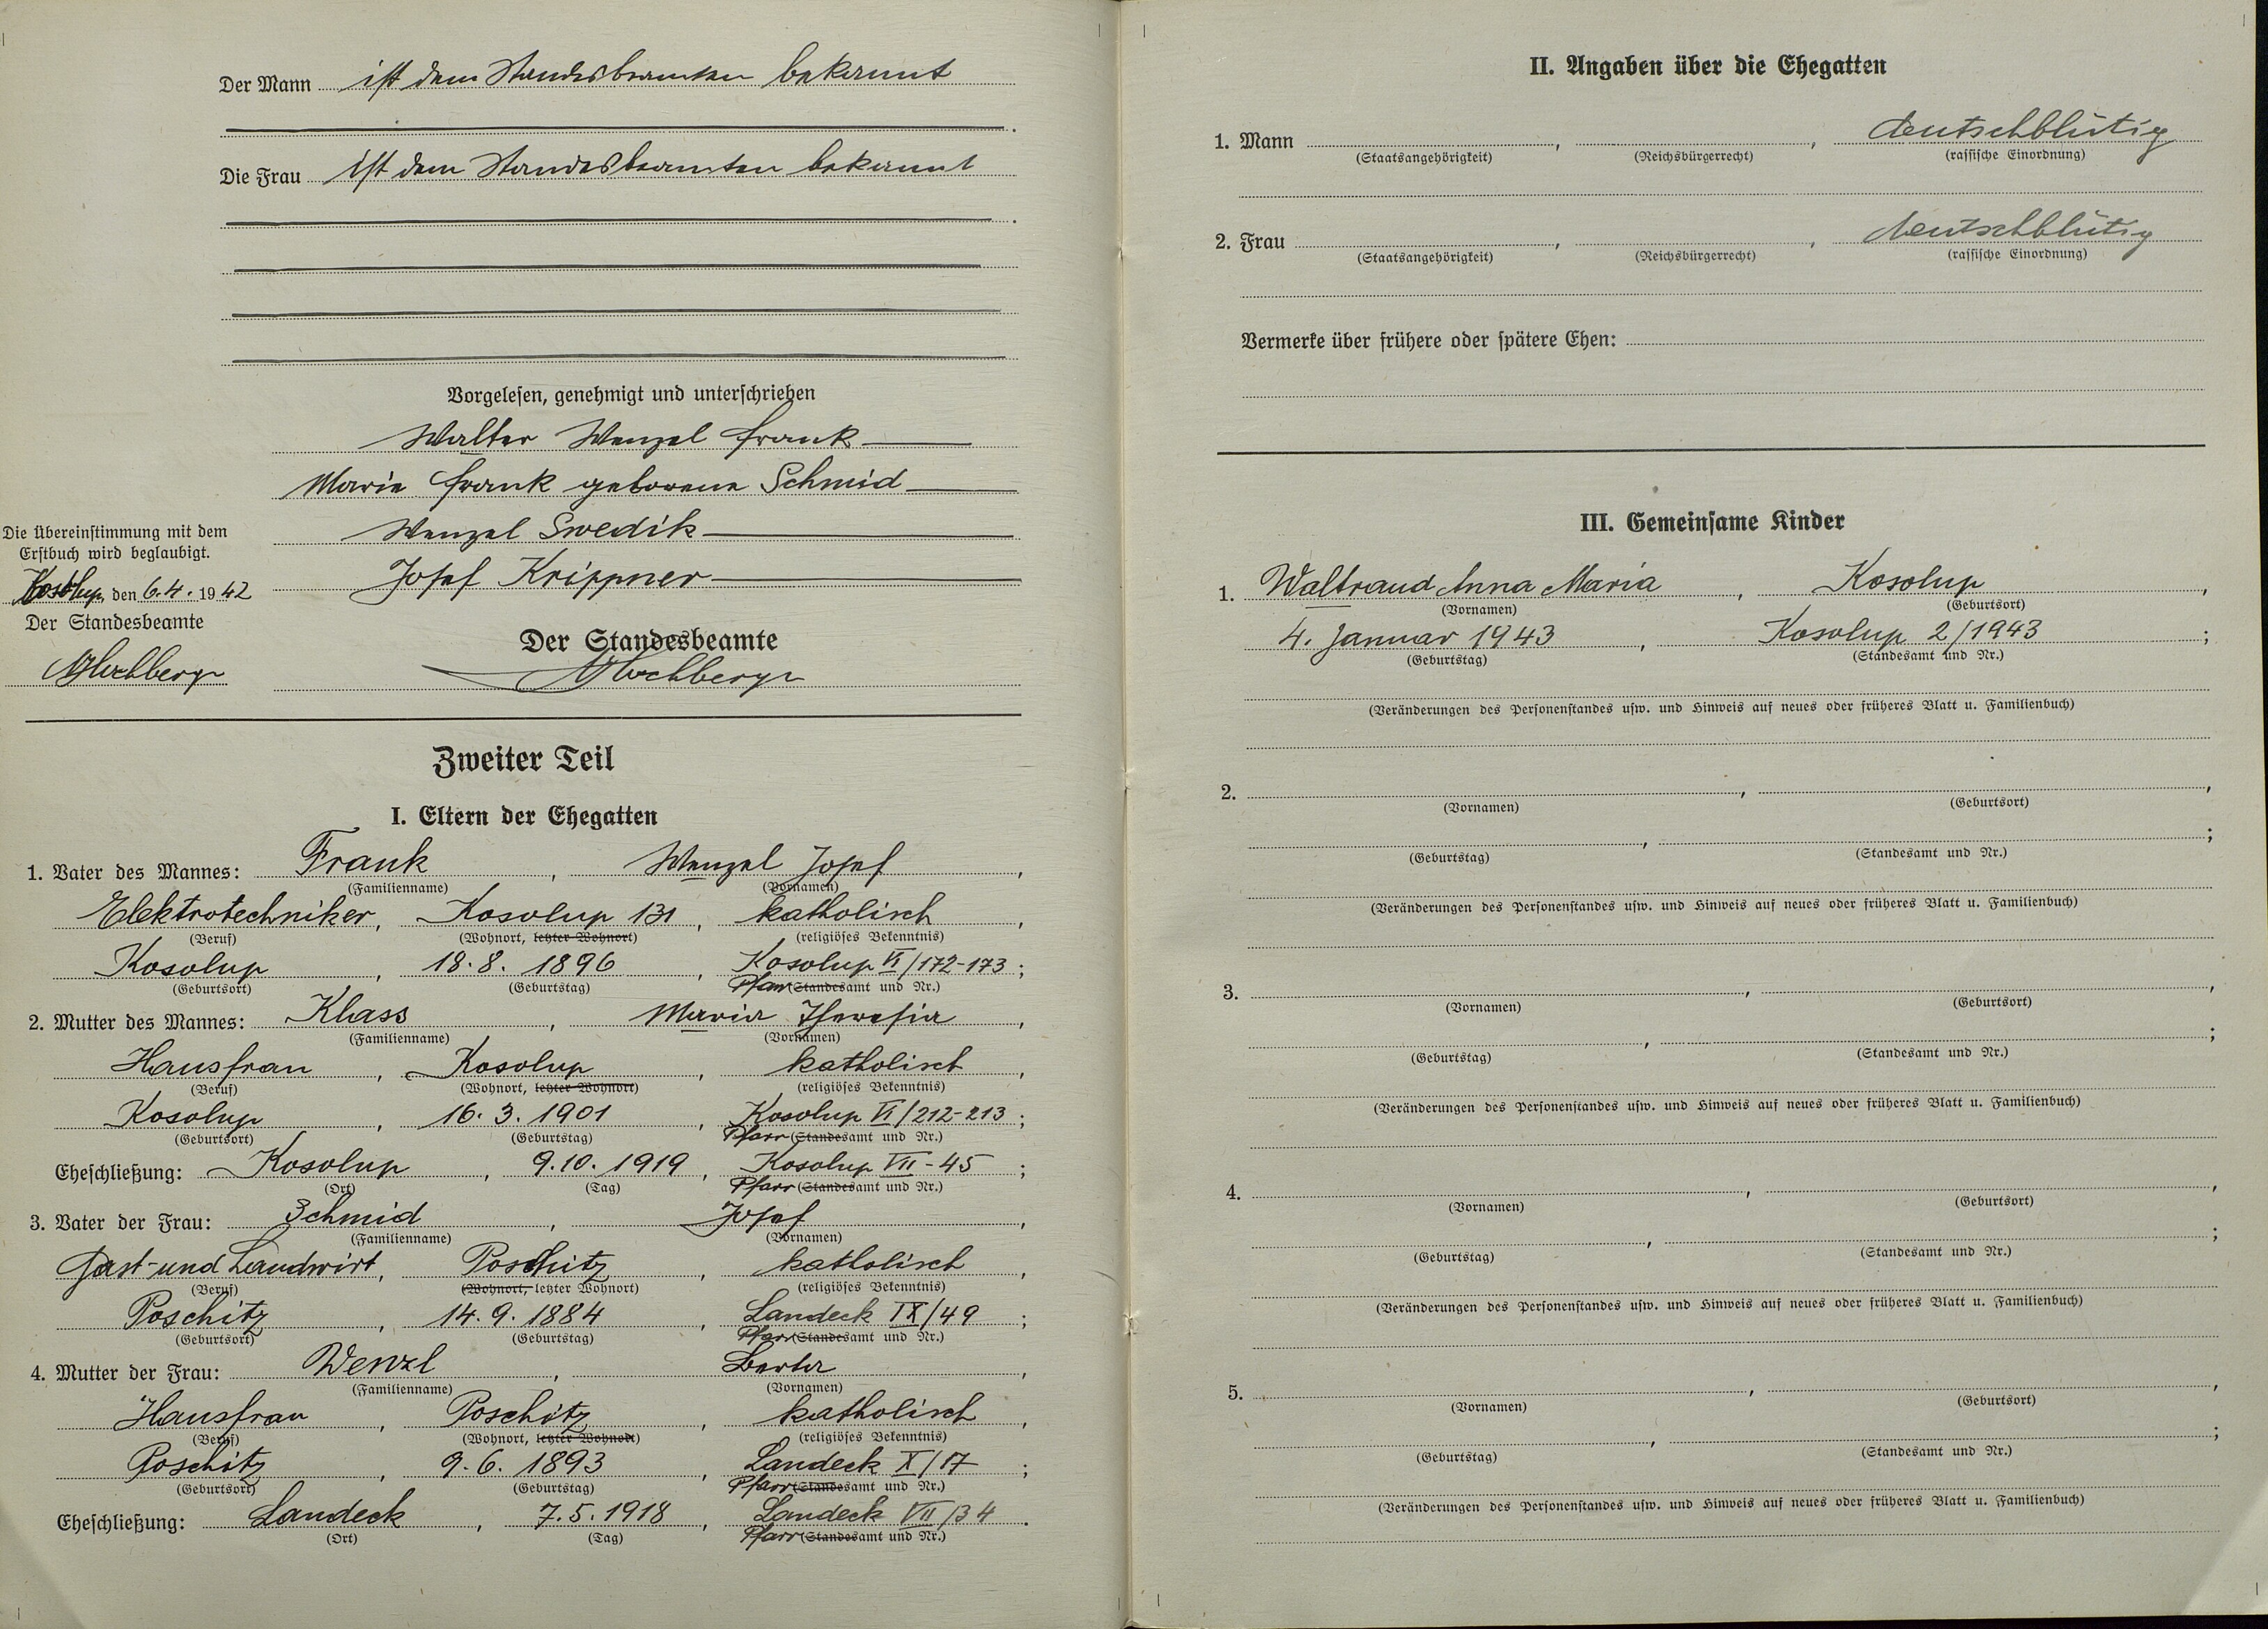 Der Mann ist dem Standesbeamten bekannt
Die Frau ist dem Standesbeamten bekannt
Vorgelesen, genehmigt und unterschrieben
Walter Wenzel Frank
Marie Frank geborene Schmid
Wenzel Swedik
Josef Krippner
Die Übereinstimmung mit dem
Erstbuch wird beglaubigt.
Kosolup, den 6.4. 1942
Der Standesbeamte
Der Standesbeamte
Zweiter Teil
I. Eltern der Ehegatten
1. Vater des Mannes: Frank, Wenzel Josef,
(Familienname) (Vornamen)
Elektrotechniker, Kosolup 131, katholisch,
(Beruf) (Wohnort, letzter Wohnort) (religiöses Bekenntnis)
Kosolup, 18.8. 1896, Kosolup VI/172-173;
(Geburtsort) (Geburtstag) Pfarr(Standesamt und Nr.)
2. Mutter des Mannes: Klass, Maria Theresia,
(Familienname) (Vornamen)
Hausfrau, Kosolup, katholisch,
(Beruf) (Wohnort, letzter Wohnort) (religiöses Bekenntnis)
Kosolup, 16.3.1901, Kosolup VI/212-213;
(Geburtsort) (Geburtstag) Pfarr(Standesamt und Nr.)
Eheschließung: Kosolup, 9.10.1919, Kosolup VII-45;
(Ort) (Tag) Pfarr(Standesamt und Nr.)
3. Vater der Frau: Schmid, Josef,
(Familienname) (Vornamen)
Gast- und Landwirt, Poschitz, katholisch,
(Beruf) (Wohnort, letzter Wohnort) (religiöses Bekenntnis)
Poschitz, 14.9.1884, Landeck IX/49;
(Geburtsort) (Geburtstag) Pfarr(Standesamt und Nr.)
4. Mutter der Frau: Wenzl, Berta,
(Familienname) (Vornamen)
Hausfrau, Poschitz, katholisch,
(Beruf) (Wohnort, letzter Wohnort) (religiöses Bekenntnis)
Poschitz, 9.6.1893, Landeck X/17;
(Geburtsort) (Geburtstag) Pfarr(Standesamt und Nr.)
Eheschließung: Landeck, 7.5.1918, Landeck VII/34.
(Ort) (Tag) Pfarr(Standesamt und Nr.)
II. Angaben über die Ehegatten
1. Mann , , deutschblütig
(Staatsangehörigkeit) (Reichsbürgerrecht) (rassische Einordnung)
2. Frau , , deutschblütig
(Staatsangehörigkeit) (Reichsbürgerrecht) (rassische Einordnung)
Vermerke über frühere oder spätere Ehen:
III. Gemeinsame Kinder
1. Waltraud Anna Maria, Kosolup,
(Vornamen) (Geburtsort)
4. Januar 1943, Kosolup 2/1943;
(Geburtstag) (Standesamt und Nr.)
(Veränderungen des Personenstandes usw. und Hinweis auf neues oder früheres Blatt u. Familienbuch)
2. , ,
(Vornamen) (Geburtsort)
, ;
(Geburtstag) (Standesamt und Nr.)
(Veränderungen des Personenstandes usw. und Hinweis auf neues oder früheres Blatt u. Familienbuch)
3. , ,
(Vornamen) (Geburtsort)
, ;
(Geburtstag) (Standesamt und Nr.)
(Veränderungen des Personenstandes usw. und Hinweis auf neues oder früheres Blatt u. Familienbuch)
4. , ,
(Vornamen) (Geburtsort)
, ;
(Geburtstag) (Standesamt und Nr.)
(Veränderungen des Personenstandes usw. und Hinweis auf neues oder früheres Blatt u. Familienbuch)
5. , ,
(Vornamen) (Geburtsort)
, ;
(Geburtstag) (Standesamt und Nr.)
(Veränderungen des Personenstandes usw. und Hinweis auf neues oder früheres Blatt u. Familienbuch)